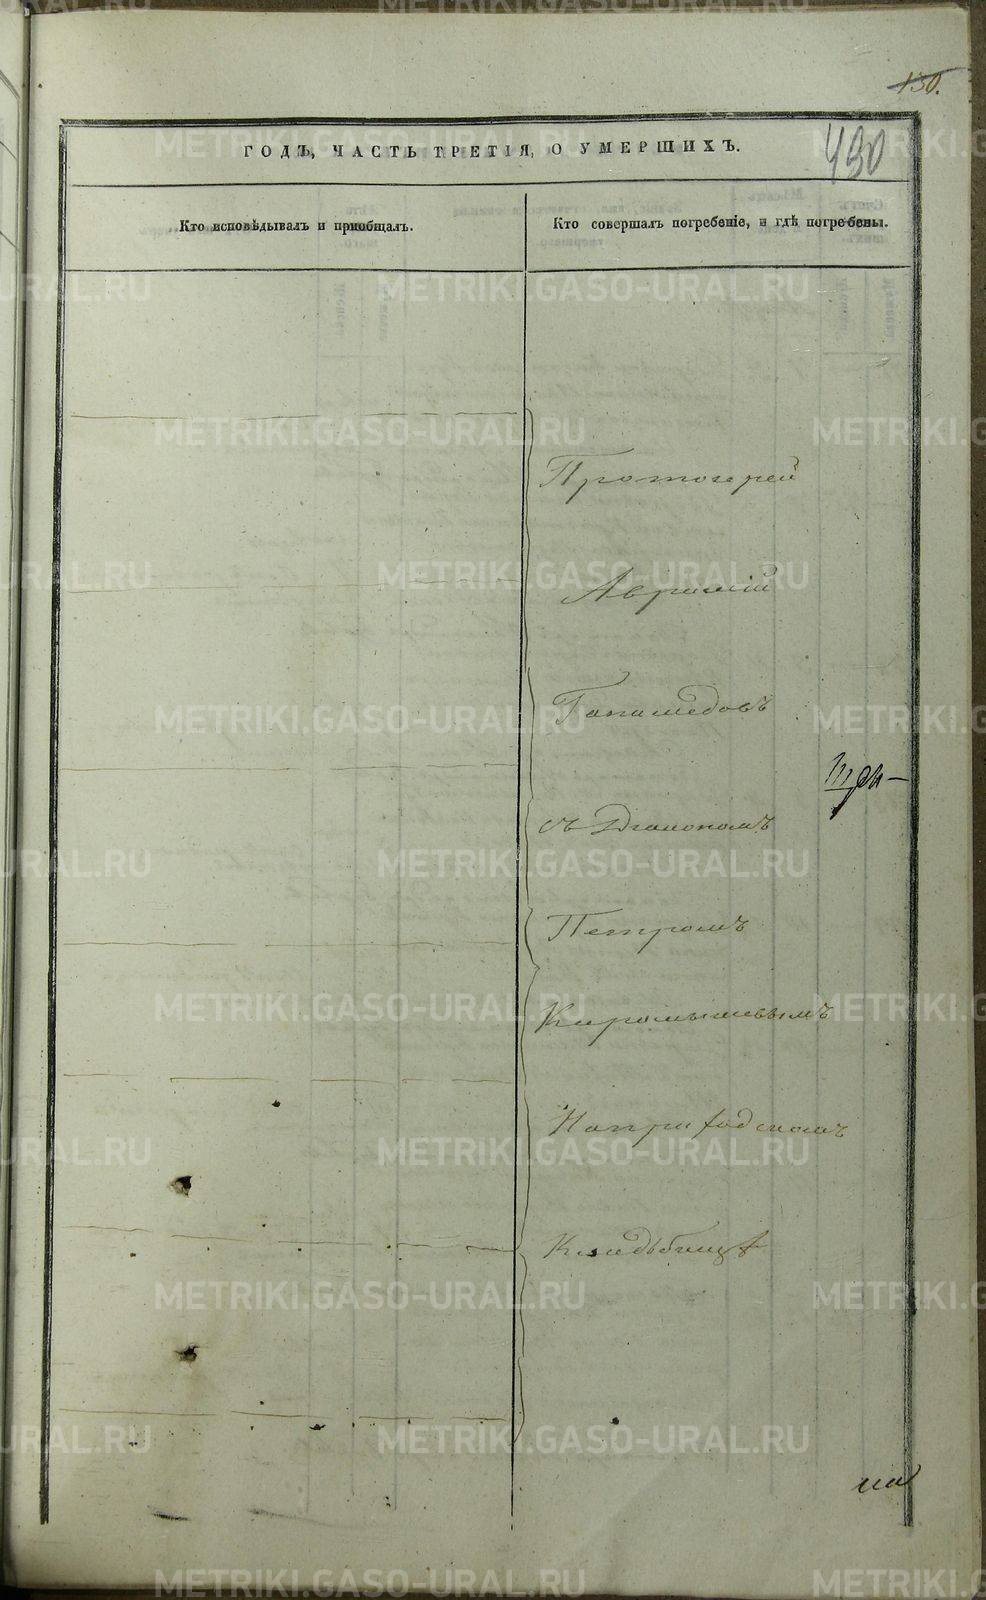 130.
430
ГОДЪ, ЧАСТЬ ТРЕТІЯ, О УМЕРШИХЪ.
Кто исповѣдывалъ и пріобщалъ.
Кто совершалъ погребеніе, и гдѣ погребены.
Протоіерей
Ганимедовъ
съ Діакономъ
Петромъ
На приходскомъ
Кладбищѣ
METRIKI.GASO-URAL.RU